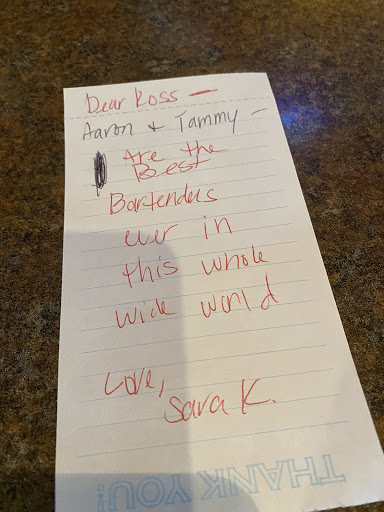 Dear Ross —
Aaron + Tammy –
Are the
Best
Bartenders
ever in
this whole
wide world
Love,
Sara K.
THANK YOU!